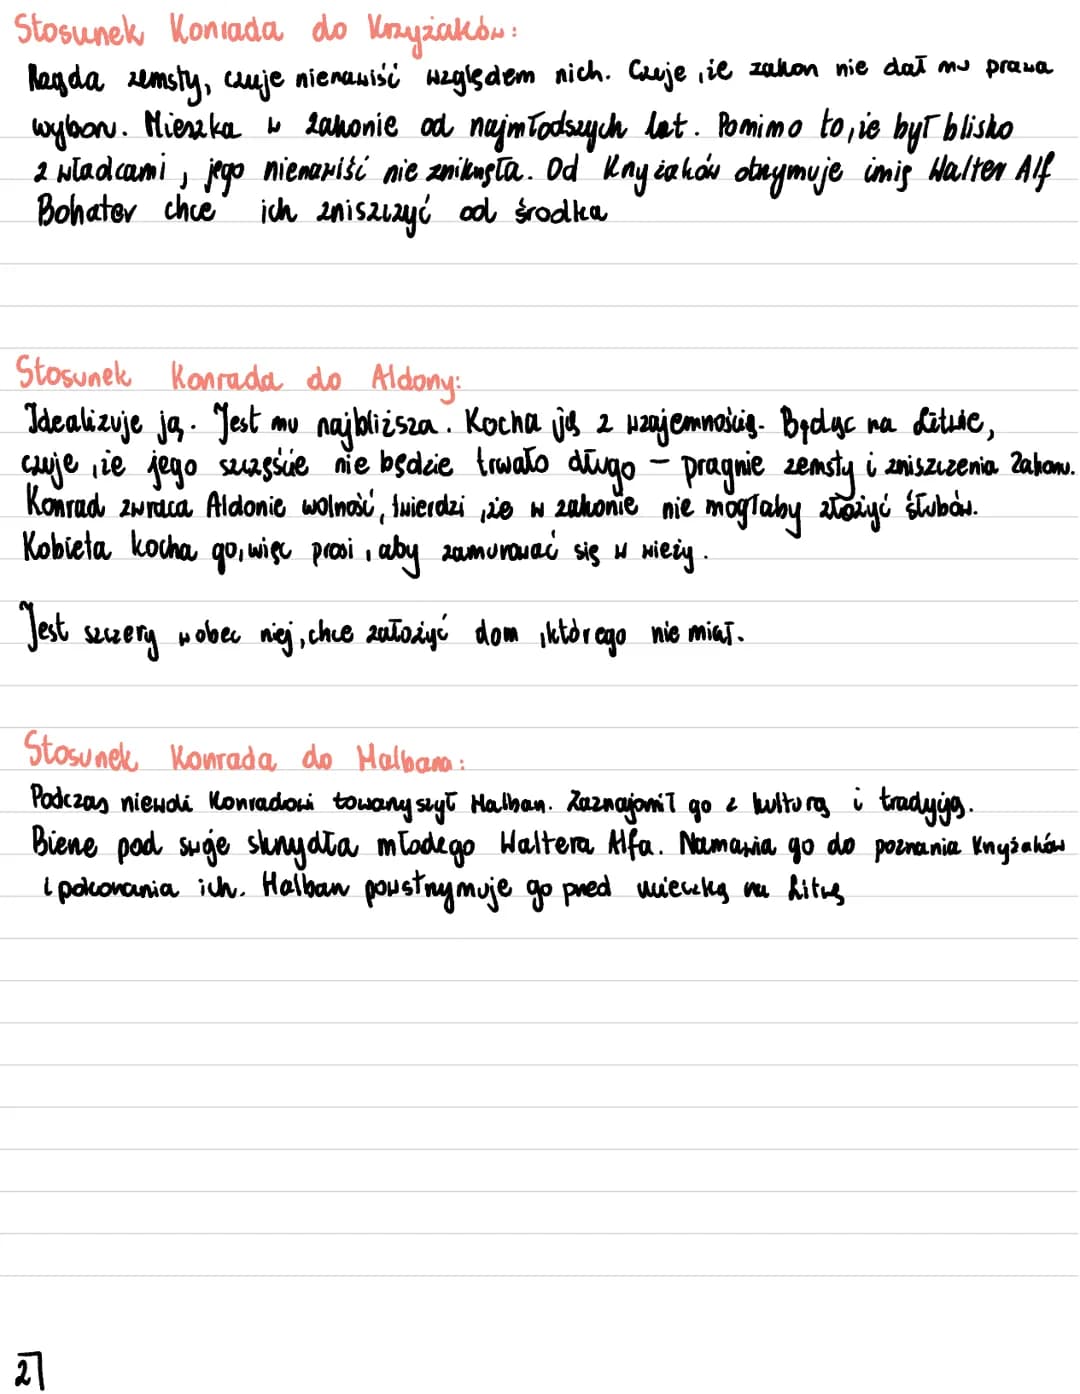 Stosunek Konrada do Krzyżaków:
Rząda zemsty, czuje nienawiść względem nich. Czuje, że zakon nie dał mu prawa
wyboru. Mieszka w zakonie od najmłodszych lat. Pomimo to, że był blisko
z władcami, jego nienawiść nie zniknęła. Od Krzyżaków otrzymuje imię Walter Alf
Bohater chce ich zniszczyć od środka
Stosunek Konrada do Aldony:
Idealizuje ją. Jest mu najbliższa. Kocha ją z wzajemnością. Będąc na Litwie,
czuje, że jego szczęście nie będzie trwało długo – pragnie zemsty i zniszczenia Zakonu.
Konrad zwraca Aldonie wolność, twierdzi, że w zakonie nie mogłaby złożyć ślubów.
Kobieta kocha go, więc prosi, aby zamurować się w wieży.
Jest szczery wobec niej, chce założyć dom, którego nie miał.
Stosunek Konrada do Halbana:
Podczas niewoli Konradowi towarzyszył Halban. Zaznajomił go z kulturą i tradycją.
Bierze pod swoje skrzydła młodego Waltera Alfa. Namawia go do poznania Krzyżaków
i pokonania ich. Halban powstrzymuje go przed ucieczką na Litwę
27